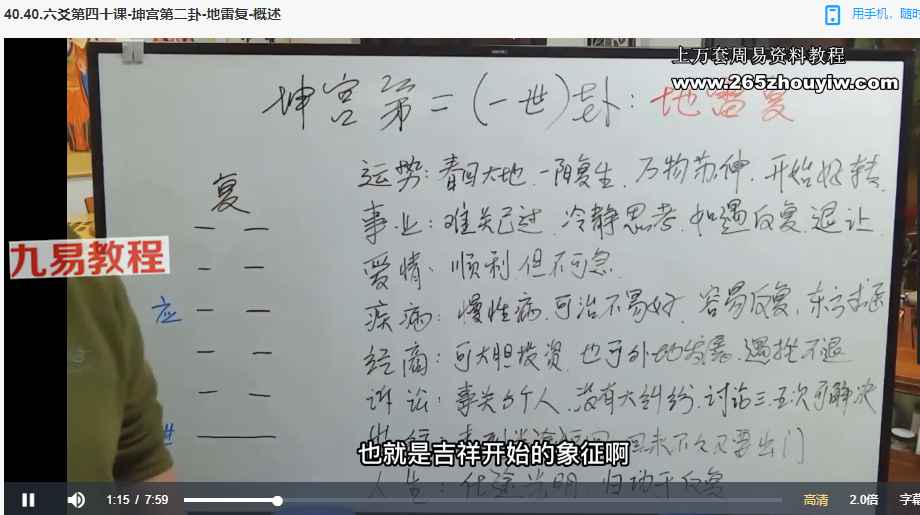 40.40.六爻第四十课-坤宫第二卦-地雷复-概述
用手机，随时
上万套周易资料教程
www.265zhouyiw.com
坤宫第二(一世)卦：地雷复
复
运势：春回大地，一阳复生，万物苏伸，开始好转，
事业：难关已过，冷静思考，如遇反复，退让，
九易教程
爱情：顺利但不可急，
应
疾病：慢性病，可治不易好，容易反复，东方求医
经商：可大胆投资，也可外地发展，遇挫不退
诉讼：事关多个人，没有大纠纷，讨论三五次可解决
世
也就是吉祥开始的象征啊
人生：仕途光明
1:15 / 7:59
高清
2.0倍
字幕